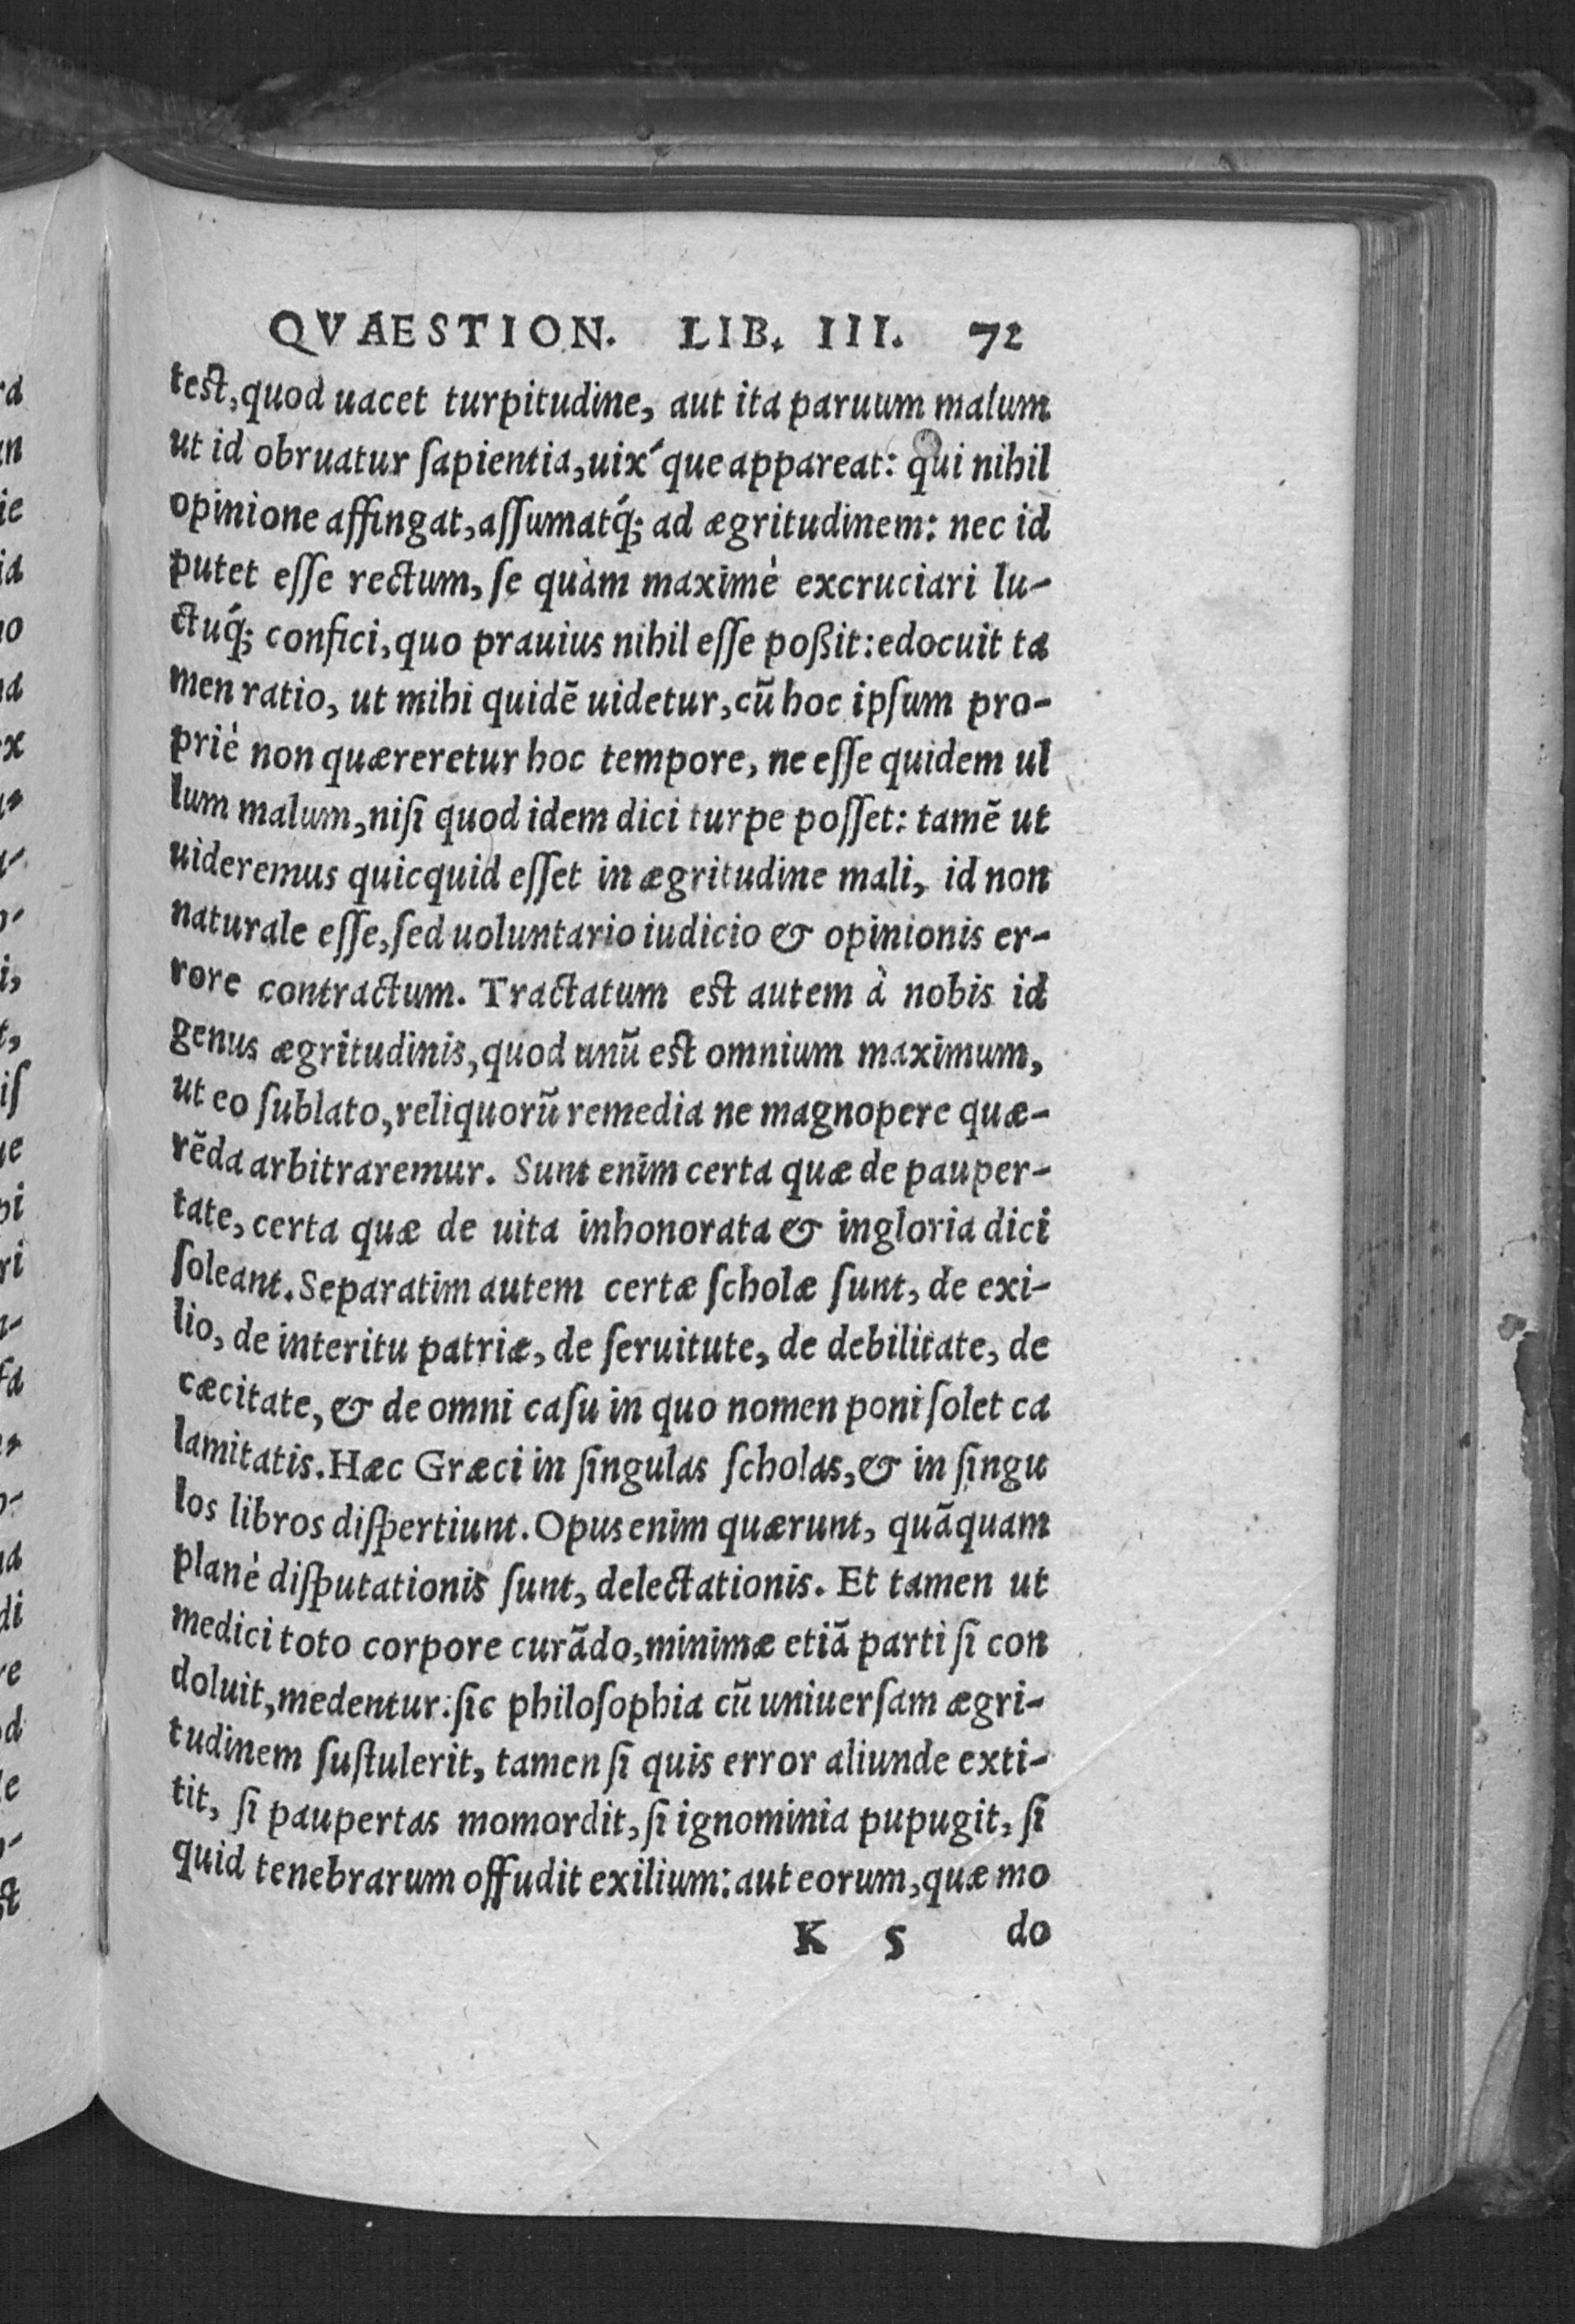 QVAESTION. LIB. III. 72
test, quod uacet turpitudine, aut ita paruum malum
ut id obruatur ſapientia, uix´que appareat: qui nihil
opinione affingat, aſſumatq́; ad ægritudinem: nec id
putet eſſe rectum, ſe quàm maximè excruciari lu-
ctuq́; confici, quo prauius nihil eſſe poßit: edocuit ta
men ratio, ut mihi quidẽ uidetur, cũ hoc ipſum pro-
priè non quæreretur hoc tempore, ne eſſe quidem ul
lum malum, niſi quod idem dici turpe poſſet: tamẽ ut
uideremus quicquid eſſet in ægritudine mali, id non
naturale eſſe, ſed uoluntario iudicio & opinionis er-
rore contractum. Tractatum est autem à nobis id
genus ægritudinis, quod unũ est omnium maximum,
ut eo ſublato, reliquorũ remedia ne magnopere quæ-
rẽda arbitraremur. Sunt enim certa quæ de pauper-
tate, certa quæ de uita inhonorata & ingloria dici
ſoleant. Separatim autem certæ ſcholæ ſunt, de exi-
lio, de interitu patriæ, de ſeruitute, de debilitate, de
cæcitate, & de omni caſu in quo nomen poni ſolet ca
lamitatis. Hæc Græci in ſingulas ſcholas, & in ſingu
los libros diſpertiunt. Opus enim quærunt, quãquam
planè diſputationis ſunt, delectationis. Et tamen ut
medici toto corpore curãdo, minimæ etiã parti ſi con
doluit, medentur: ſic philoſophia cũ uniuerſam ægri-
tudinem ſuſtulerit, tamen ſi quis error aliunde exti-
tit, ſi paupertas momordit, ſi ignominia pupugit, ſi
quid tenebrarum offudit exilium: aut eorum, quæ mo
K 5 do